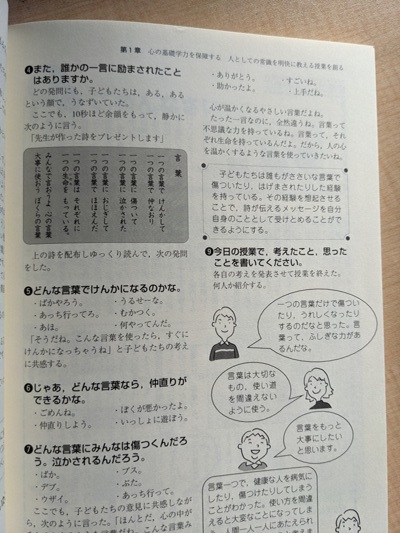 第1章 心の基礎学力を保障する 人としての常識を明快に教える授業を創る
❹また、誰かの一言に励まされたこと
はありますか。
どの発問にも、子どもたちは、ある、ある
という顔で、うなずいていた。
ここでも、10秒ほど余韻をもって、静かに
次のように言う。
「先生が作った詩をプレゼントします」
言葉
一つの言葉でけんかして
一つの言葉で仲なおり
一つの言葉に傷ついて
一つの言葉に泣かされた
一つの言葉でおじぎして
一つの言葉でほほえんだ
一つの言葉はそれぞれに
一つの生命をもっている。
みんなで言おうよ心の言葉
大事に使おうぼくらの言葉
上の詩を配布しゆっくり読んで、次の発問
をした。
❺どんな言葉でけんかになるのかな。
・ばかやろう。 ・うるせーな。
・あっち行ってろ。 ・むかつく。
・あほ。 ・何やってんだ。
「そうだね。こんな言葉を使ったら、すぐに
けんかになっちゃうね」と子どもたちの考え
に共感する。
❻じゃあ、どんな言葉なら、仲直りが
できるかな。
・ごめんね。 ・ぼくが悪かったよ。
・仲直りしよう。 ・いっしょに遊ぼう。
❼どんな言葉にみんなは傷つくんだろ
う。泣かされるんだろう。
・ばか。 ・ブス。
・デブ。 ・ぶた。
・ウザイ。 ・あっち行って。
ここでも、子どもたちの意見に共感しなが
ら、次のように言った。「ほんとだ、心の中が
・ありがとう。 ・すごいね。
・助かったよ。 ・上手だね。
心が温かくなるやさしい言葉だよね。
たった一言なのに、全然違うね。言葉って
不思議な力を持っているね。言葉って、それ
ぞれ生命を持っているんだよ。だから、人の心
を温かくするような言葉を使っていきたいね。
子どもたちは誰もがささいな言葉で
傷ついたり、はげまされたりした経験
を持っている。その経験を想起させる
ことで、詩が伝えるメッセージを自分
自身のこととして受けとめることがで
きるようにする。
❾今日の授業で、考えたこと、思った
ことを書いてください。
各自の考えを発表させて授業を終えた。
何人か紹介する。
一つの言葉だけで傷つい
たり、うれしくなったり
するのだなと思った。言
葉って、ふしぎな力があ
るんだな。
言葉は大切な
もの、使い道
を間違えない
ように使う。
言葉をもっと
大事にしたい
と思います。
言葉一つで、健康な人を病気に
したり、傷つけたりしてしまう
ことがわかった。使い方を間違
えると大変なことになってしま